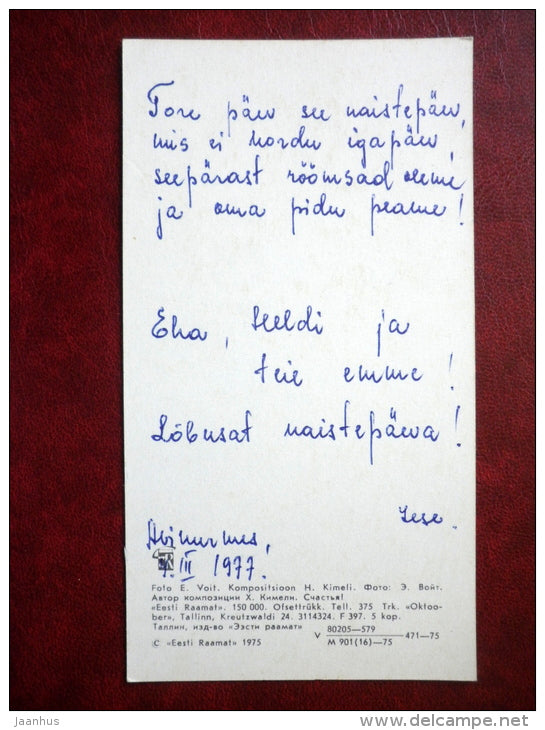 Tore päev see naistepäev,
mis ei kordu igapäev,
seepärast rõõmsad oleme
ja oma pidu peame!
Eha, Heldi ja
teie emme!
Lõbusat naistepäeva!
Avinurmes,
III 1977.
Foto E. Voit. Kompositsioon H. Kimeli. Фото: Э. Войт.
Автор композиции Х. Кимели. Счастья!
«Eesti Raamat». 150 000. Ofsettrükk. Tell. 375 Trk. «Oktoo-
ber», Tallinn, Kreutzwaldi 24. 3114324. F 397. 5 kop.
Таллин, изд-во «Ээсти раамат»
V 80205—579 471—75
M 901(16)—75
© «Eesti Raamat» 1975
Jaanhus
www.delcampe.net